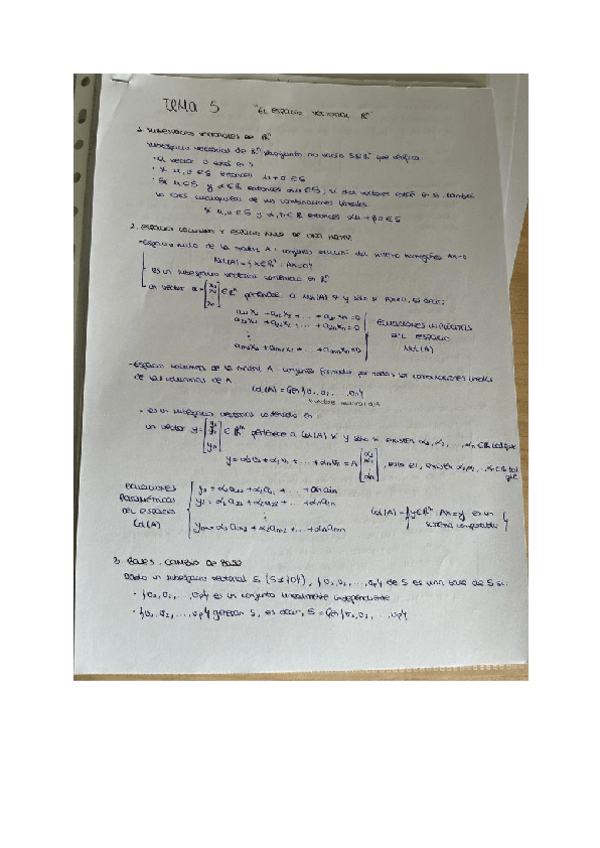 TEMA 5 "EL ESPACIO VECTORIAL Rⁿ"
1. SUBESPACIOS VECTORIALES DE Rⁿ
Subespacio vectorial de Rⁿ: conjunto no vacío S⊆Rⁿ que verifica:
· El vector 0 está en S
· Si u, v ∈ S entonces u+v ∈ S
· Si u ∈ S y α ∈ R entonces αu ∈ S; si dos vectores están en S, también
lo está cualquiera de sus combinaciones lineales
Si u, v ∈ S y α, β ∈ R entonces αu + βv ∈ S
2. ESPACIO COLUMNA Y ESPACIO NULO DE UNA MATRIZ
- Espacio nulo de la matriz A: conjunto solución del sistema homogéneo Ax=0
Nul(A) = {x∈Rⁿ : Ax=0}
es un subespacio vectorial contenido en Rⁿ
un vector x = [x₁ x₂ ⋮ xₙ] ∈ Rⁿ pertenece a Nul(A) si y sólo si Ax=0, es decir:
a₁₁x₁ + a₁₂x₂ + ... + a₁ₙxₙ = 0
a₂₁x₁ + a₂₂x₂ + ... + a₂ₙxₙ = 0
⋮
aₘ₁x₁ + aₘ₂x₂ + ... + aₘₙxₙ = 0
ECUACIONES IMPLÍCITAS
DEL ESPACIO
Nul(A)
- Espacio columna de la matriz A: conjunto formado por todas las combinaciones lineales
de las columnas de A
Col(A) = Gen{v₁, v₂, ..., vₙ}
- es un subespacio vectorial contenido en
un vector y = [y₁ y₂ ⋮ yₘ] ∈ Rᵐ pertenece a Col(A) si y sólo si existen α₁, α₂, ..., αₙ ∈ R tal que
y = α₁v₁ + α₂v₂ + ... + αₙvₙ = A [α₁ α₂ ⋮ αₙ], esto es, existen α₁, α₂, ..., αₙ ∈ R tal
que
ECUACIONES
PARAMÉTRICAS
DEL ESPACIO
Col(A)
y₁ = α₁a₁₁ + α₂a₁₂ + ... + αₙa₁ₙ
y₂ = α₁a₂₁ + α₂a₂₂ + ... + αₙa₂ₙ
⋮
yₘ = α₁aₘ₁ + α₂aₘ₂ + ... + αₙaₘₙ
Col(A) = {y∈Rᵐ : Ax=y es un
sistema compatible}
3. BASES. CAMBIO DE BASE
Dado un subespacio vectorial S (S≠{0}), {v₁, v₂, ..., vₚ} de S es una base de S si:
· {v₁, v₂, ..., vₚ} es un conjunto linealmente independiente
· {v₁, v₂, ..., vₚ} generan S, es decir, S = Gen{v₁, v₂, ..., vₚ}